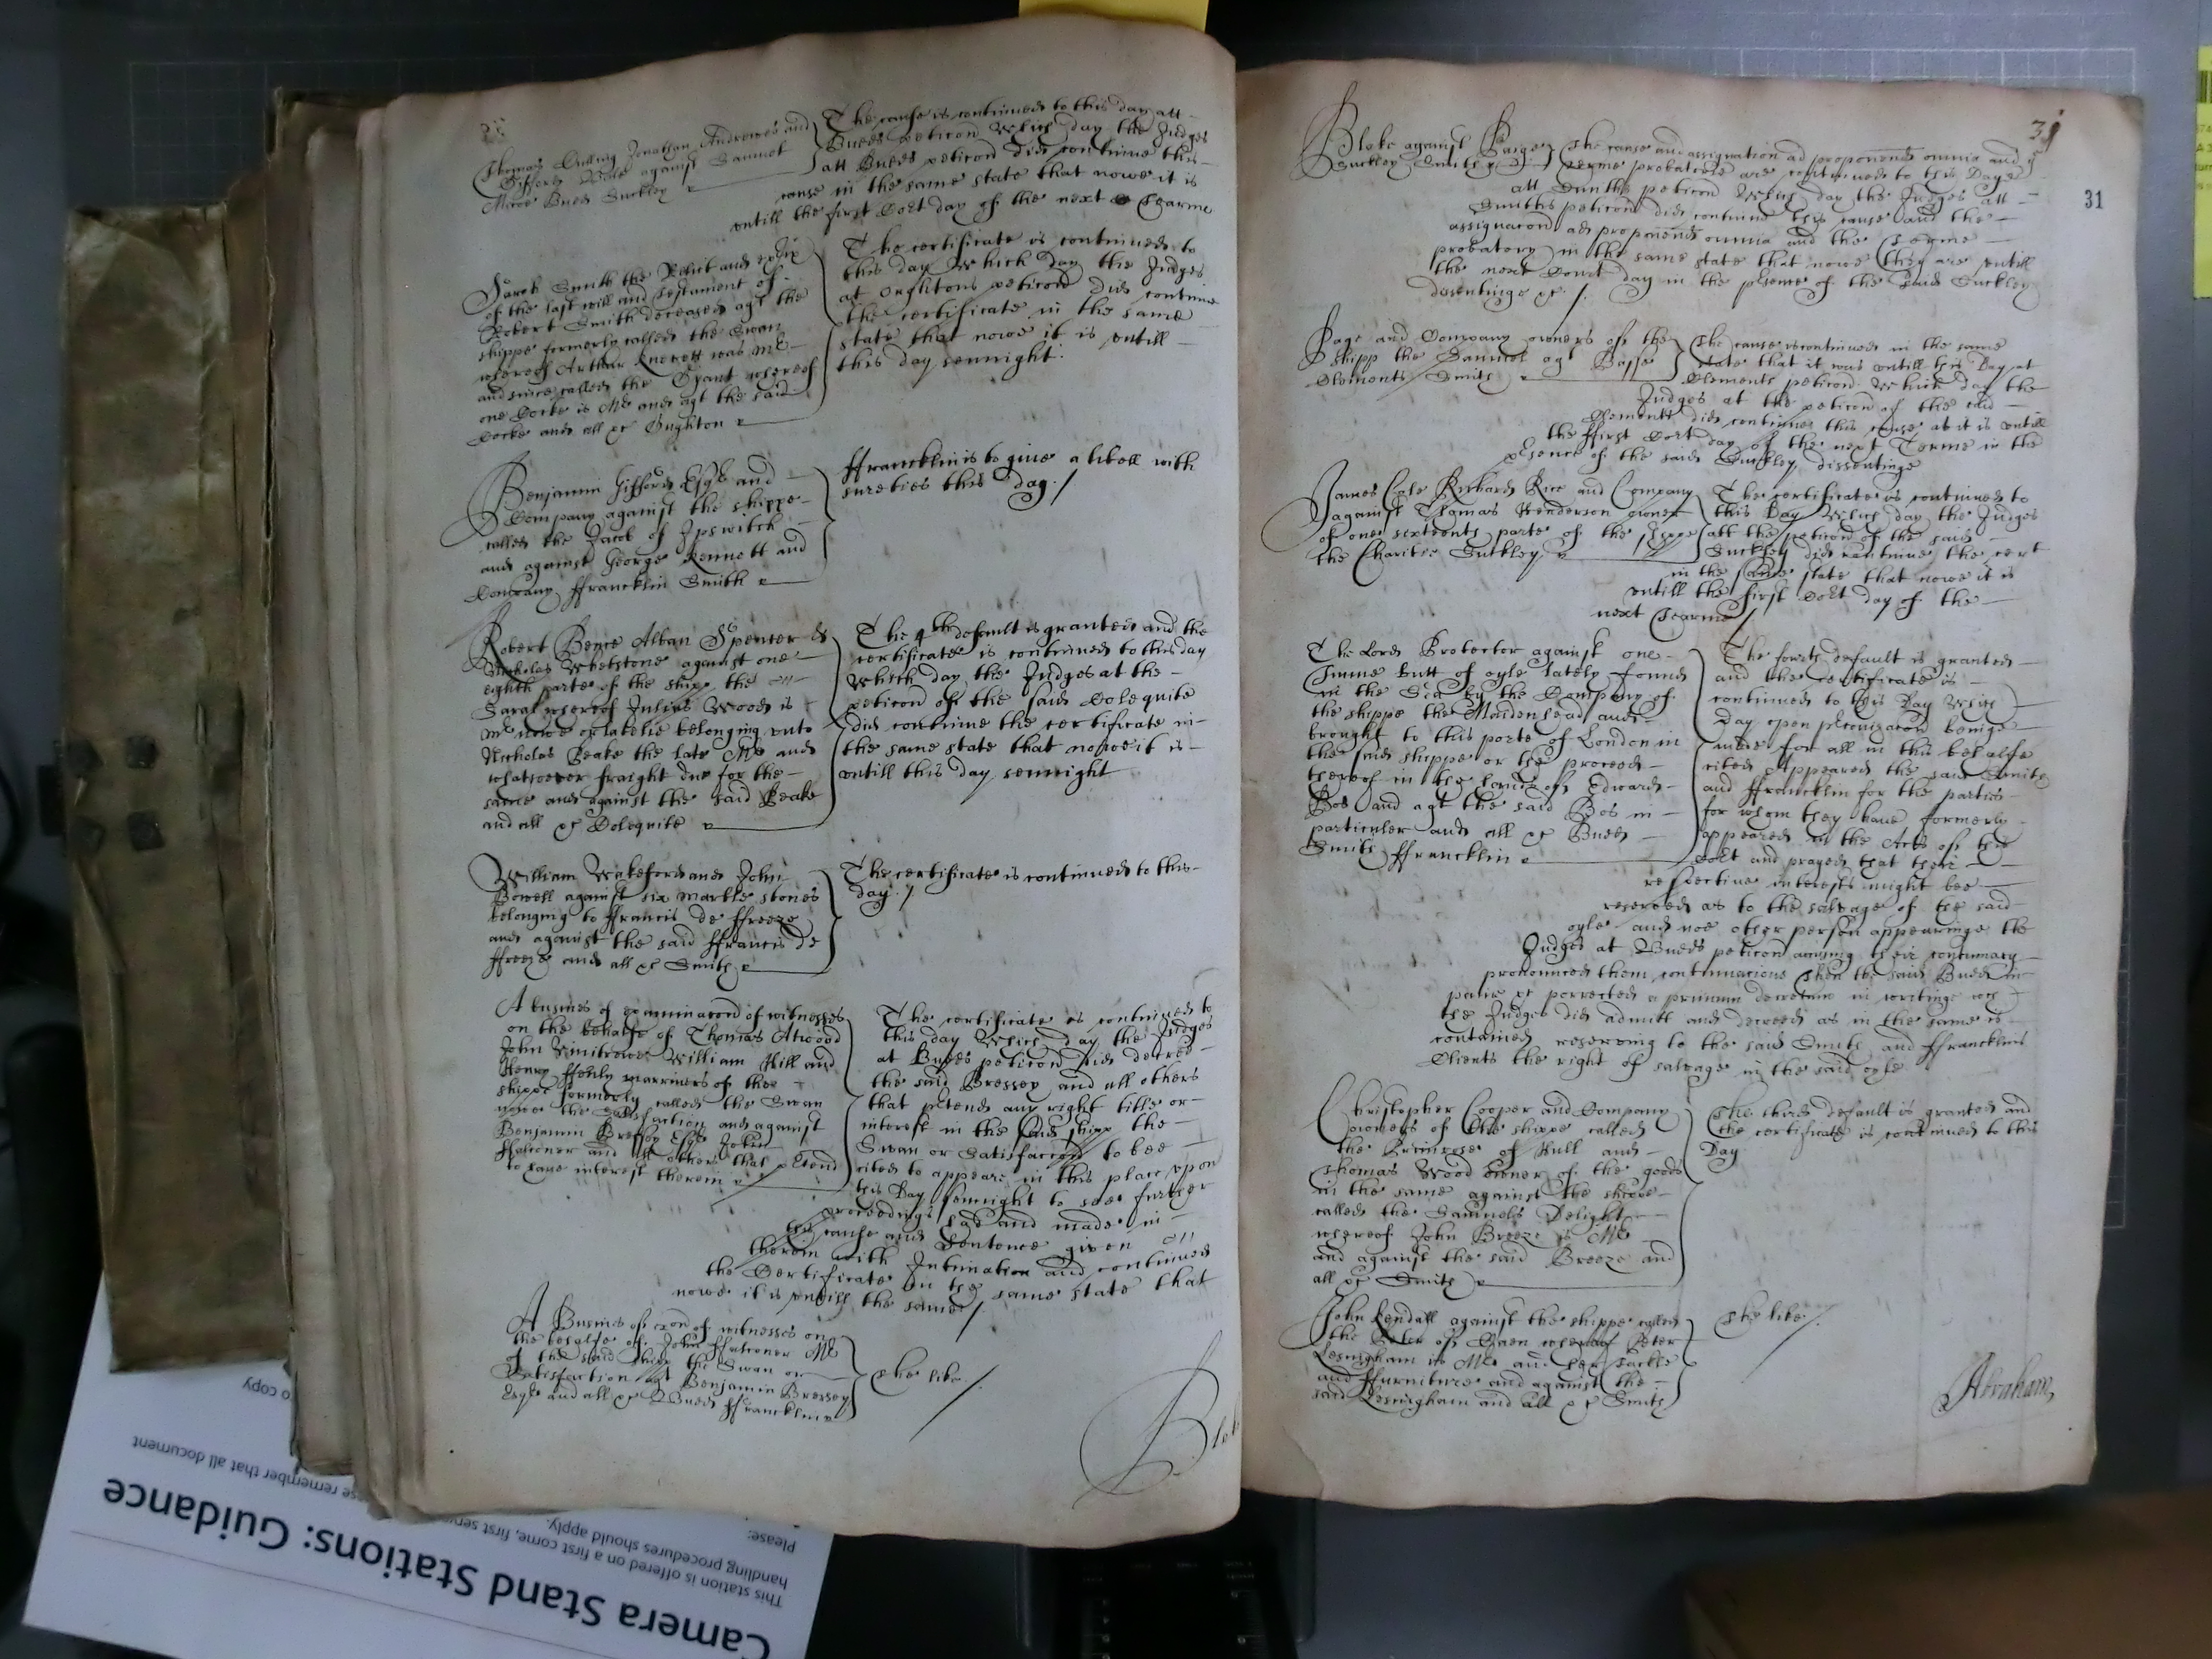 Thomas Culling Jonathan Andrewes and
Gifford Bale against Samuel
Micoe Budd Suckley
The cause is continued to this day att
Budds peticon Which day the Judges
att Budds peticon did continue this
cause in the same state that nowe it is
untill the first Cort day of the next Tearme
Sarah Smith the Relict and exsix
of the last will and Testament of
Robert Smith deceased agt the
shippe formerly called the Swan
whereof Arthur Knevett was Mr
and since called the Gyant whereof
one Cocke is Mr and agt the said
Cocke and all &c
The certificate is continued to
this day Which day the Judges
at peticon did continue
the certificate in the same
state that nowe it is untill
this day sennight
Benjamin Gifford Esqr and
Company against the shippe
called the Jacob of Ipswitch
and against George Kennett and
Company ffrancklin Smith
ffrancklin is to give a libell with
sureties this day /
Robert Bence Alban Spencer &
Nicholas Whetstone against one
eighth parte of the ship the
Sarah whereof Julius Wood is
Mr nowe or latelie belonging unto
Nicholas Peake the late Mr and
whatsoever fraight due for the
same and against the said Peake
and all &c Colequite
The 4th default is granted and the
certificate is continued to this day
Which day the Judges at the
peticon of the said Colequite
did continue the certificate in
the same state that nowe it is
untill this day sennight
William Wakeford and John
Bowell against six marble stones
belonging to ffrancis de ffreeze
and against the said ffrancis de
ffreeze and all &c Smith
The certificate is continued to this
day /
A busines of examinacon of witnesses
on the behalfe of Thomas Atwood
John William Hill and
Henry marriners of the
shippe formerly called the Swan
nowe the Satisfaction and against
Benjamin Bressey Esqr John
ffalconer and all others that ptend
to have interest therein
The certificate is continued to
this day Which day the Judges
at Budds peticon did decree
the said Bressey and all others
that ptend any right title or
interest in the said shipp the
Swan or Satisfaccon to bee
cited to appeare in this place upon
this Day sennight to see further
proceedings had and made in
the cause and Sentence given
therein with Intimation and continued
the Certificate in the same state that
nowe it is untill the same /
A Busines of exon of witnesses on
the behalfe of John ffalconer Mr
of the said shipp the Swan or
Satisfaction agt Benjamin Bressey
Esqr and all &c Budd ffrancklin
The like /
31
31
Blake against Barger
Suckley Smith
The cause and assignation ad proponend omnia and ye
terme probatorie are continued to this Daye
att Smiths peticon Which day the Judges att
Smiths peticon did continue this cause and the
assignacon ad proponend omnia and the Tearme
probatory in the same state that nowe they are untill
the next Court day in the psence of the said Suckley
dissentinge &c /
Page and Company owners of the
shipp the Samuel agt Basse
Clements Smith
The cause is continued in the same
state that it was untill this Day at
Clements peticon Which day the
Judges at the peticon of the said
Clements did continue this cause as it is untill
the ffirst Cort day of the next Terme in the
psence of the said Suckley dissentinge
James Cole Richard Rice and Company
against Thomas Henderson owner
of one sixteenth parte of the shippe
the Charitie Suckley
The certificate is continued to
this Day Which day the Judges
att the peticon of the said
Suckley did continue the cert
in the same state that nowe it is
untill the first Cort day of the
next Tearme /
The Lord Protector against one
Jmme butt of oyle lately found
in the Sea by the Company of
the shippe the Maidenhead and
brought to this porte of London in
the said shippe or the proceed
thereof in the hands of Edward
Bos and agt the said Bos in
particuler and all &c Budd
Smith ffrancklin
The fourth default is granted
and the certificate is
continued to this Day Which
Day upon pconizacon beinge
made for all in this behalfe
cited Appeared the said Smith
and ffrancklin for the parties
for whom they have formerly
appeared in the Acts of this
Cort and prayed that their
respective interests might bee
reserved as to the salvage of the said
oyle and noe other person appearinge the
Judges at Budds peticon accusing their contumacy
pronounced them contumacious Then the said Budd in
paine &c porrected a primum decretum in writinge wch
the Judges did admitt and decreed as in the same is
contained reserving to the said Smith and ffrancklins
Clients the right of salvage in the said oyle
Christopher Cooper and Company
owners of the shippe called
the Primrose of Hull and
Thomas Wood owner of the goods
in the same against the shippe
called the Samuels Delight
whereof John Breeze is Mr
and against the said Breeze and
all &c Smith
The third default is granted and
the certificate is continued to this
Day
John Kendall against the shippe called
the Peter of Caen whereof Peter
Lesingham is Mr and her tackle
and ffurniture and against the
said Lesingham and all &c Smith
The like /
Abraham
Camera Stand Stations: Guidance
This station is offered on a first come, first
handling procedures should apply.
Please:
remember that all document
copy